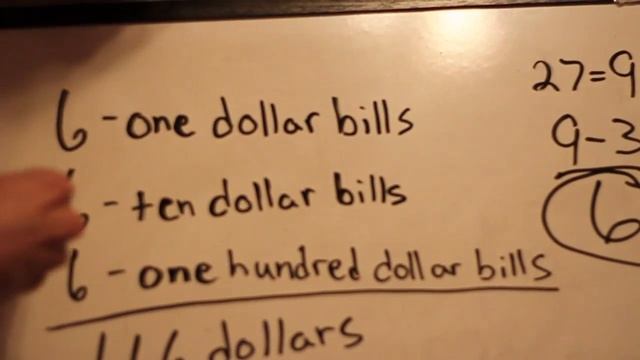 6 - one dollar bills
- ten dollar bills
6 - one hundred dollar bills
dollars
27=9
9-3
6